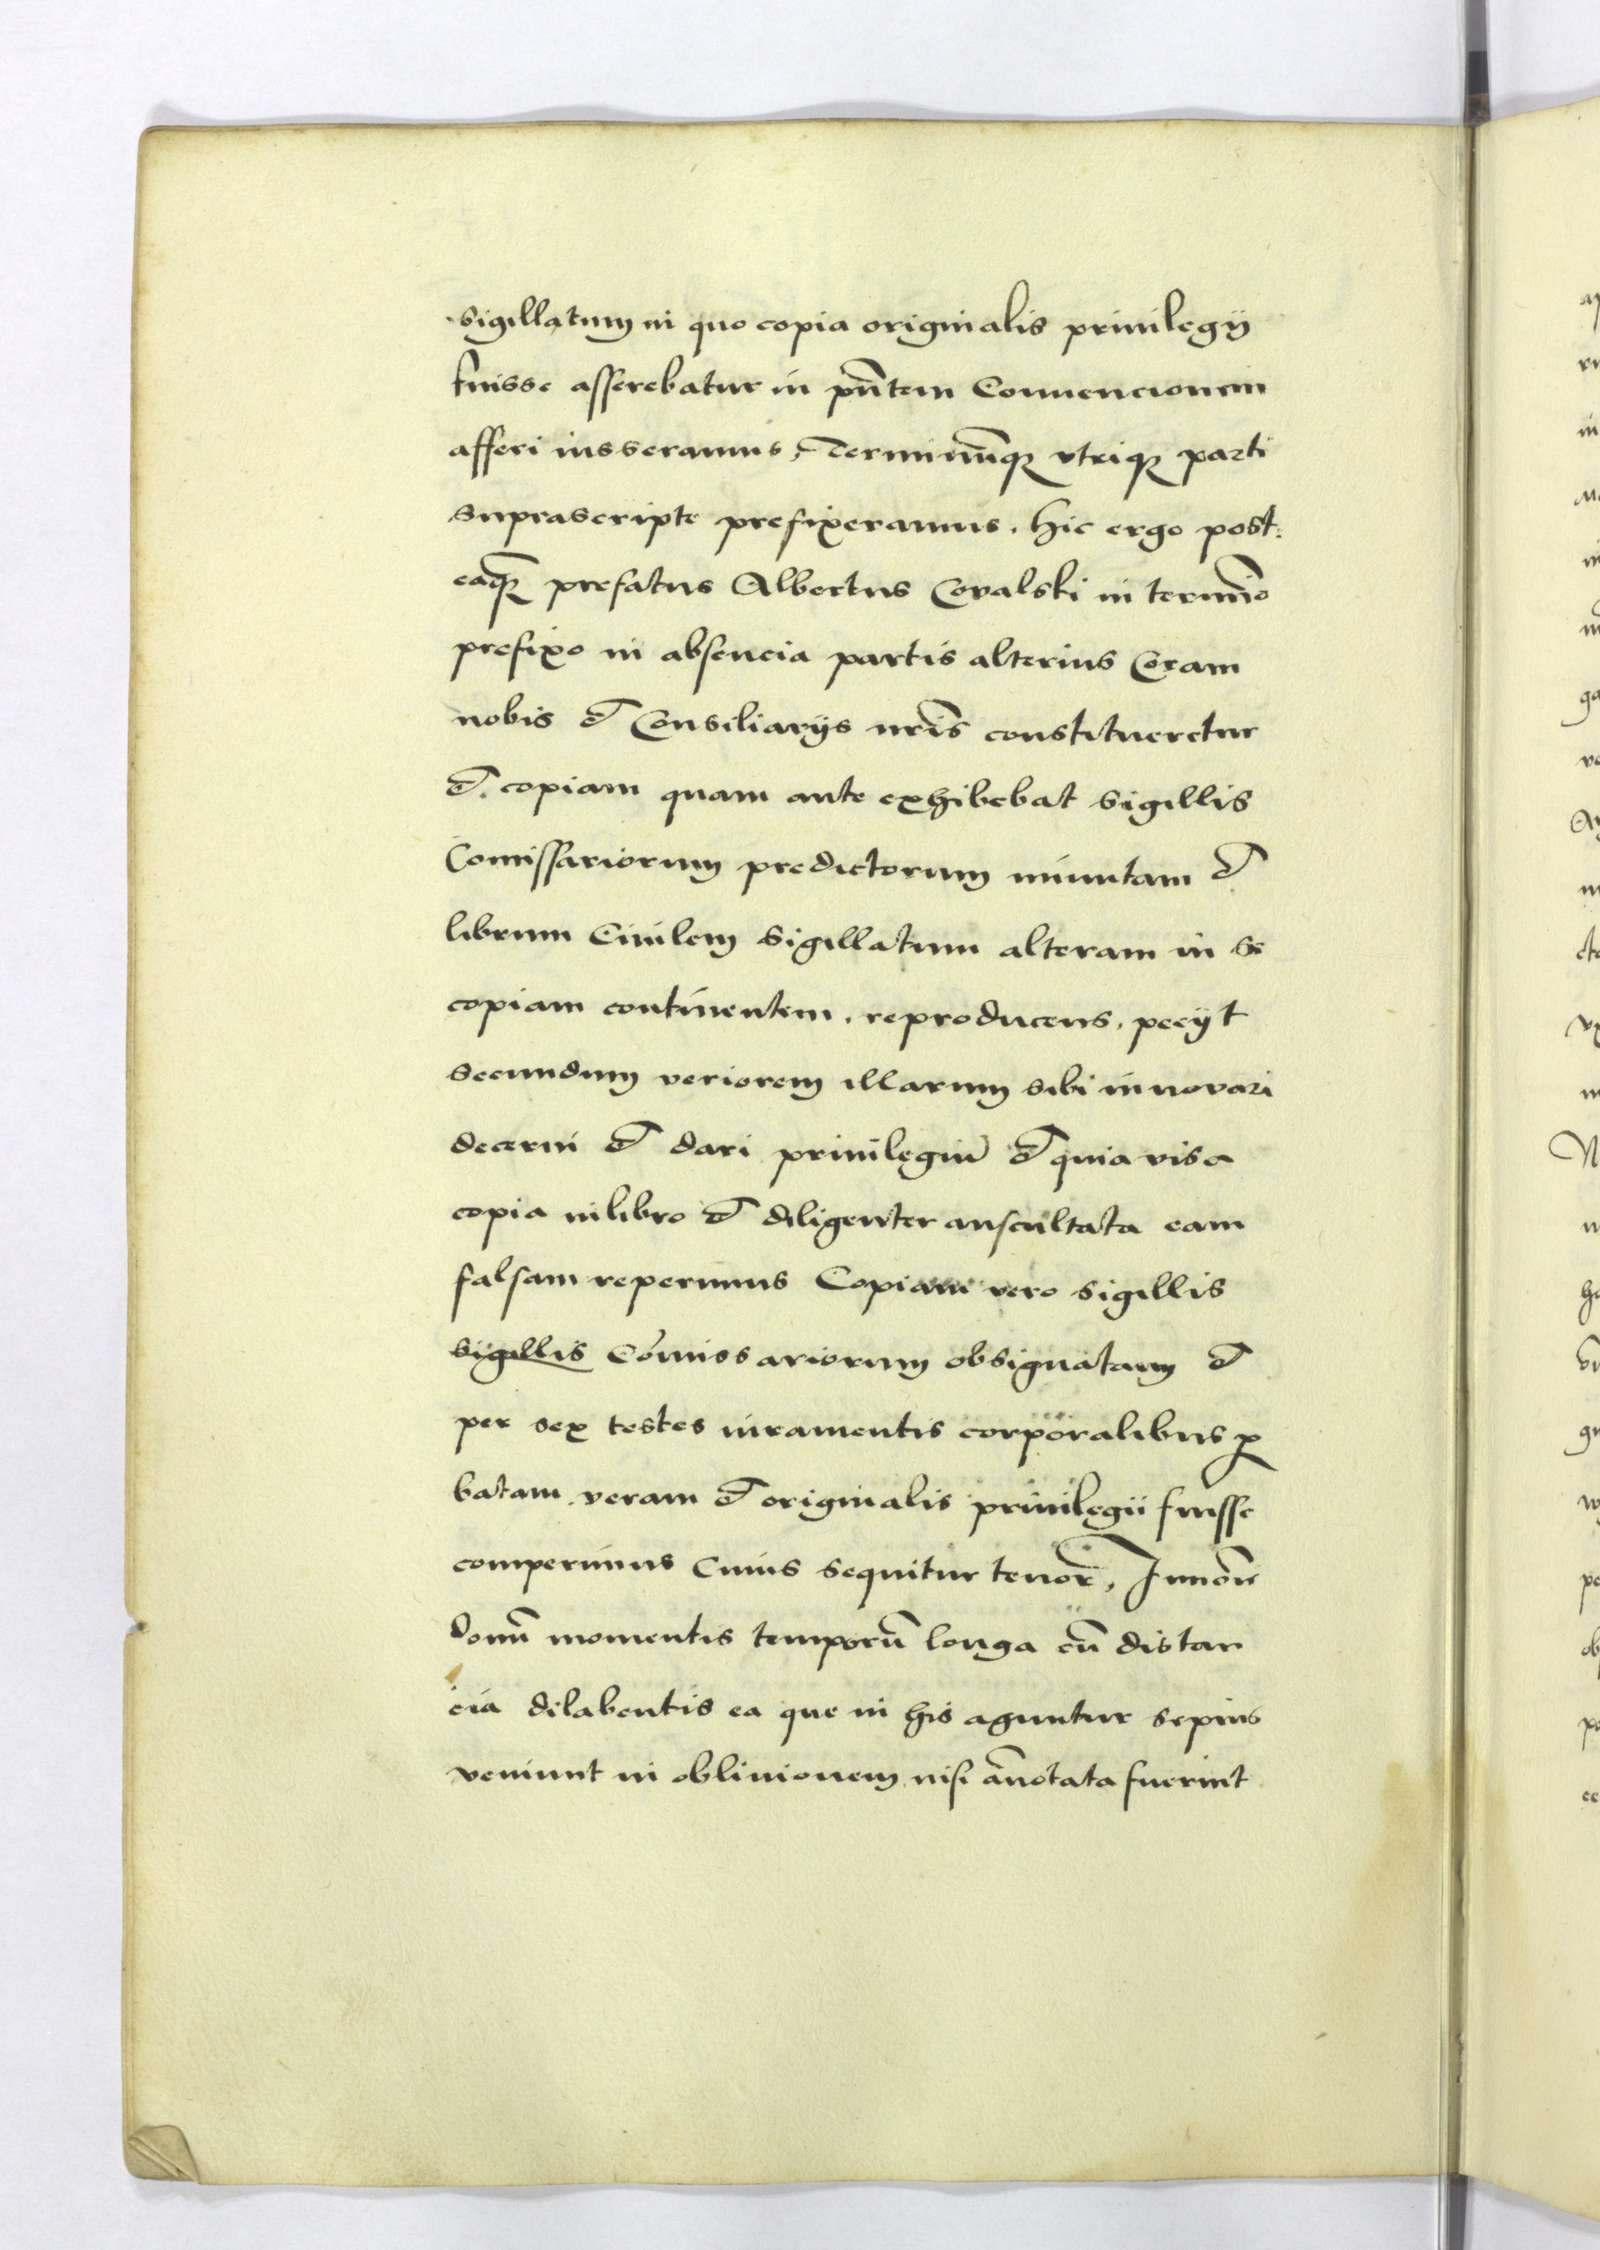 sigillatum in quo copia originalis priuilegij
fuisse asserebatur in pñtem Conuencionem
afferi iusseramus, Terminũq; vtriq; parti
suprascripte prefixeramus. hic ergo post:
eaq̃ prefatus Albertus Covalski in termĩo
prefixo in absencia partis alterius Coram
nobis et Consiliarijs nr̃is constitueretur
et copiam quam ante exhibebat sigillis
Comissariorum predictorum munitam et
librum Ciuilem sigillatum alteram in se
copiam continentem. reproducens. pecijt
secundum veriorem illarum sibi innovari
decerni et dari priuilegiũ et quia visa
copia in libro et diligenter auscultata eam
falsam reperimus Copiam vero sigillis
sigillis Cõmissariorum obsignatam et
per sex testes iuramentis corporalibus ꝓ
batam veram et originalis priuilegii fuisse
comperimus Cuius sequitur tenor,
donũ momentis temporũ longa cũ distan
cia dilabentis ea que in his aguntur sepius
veniunt in obliuionem nisi ãnotata fuerint